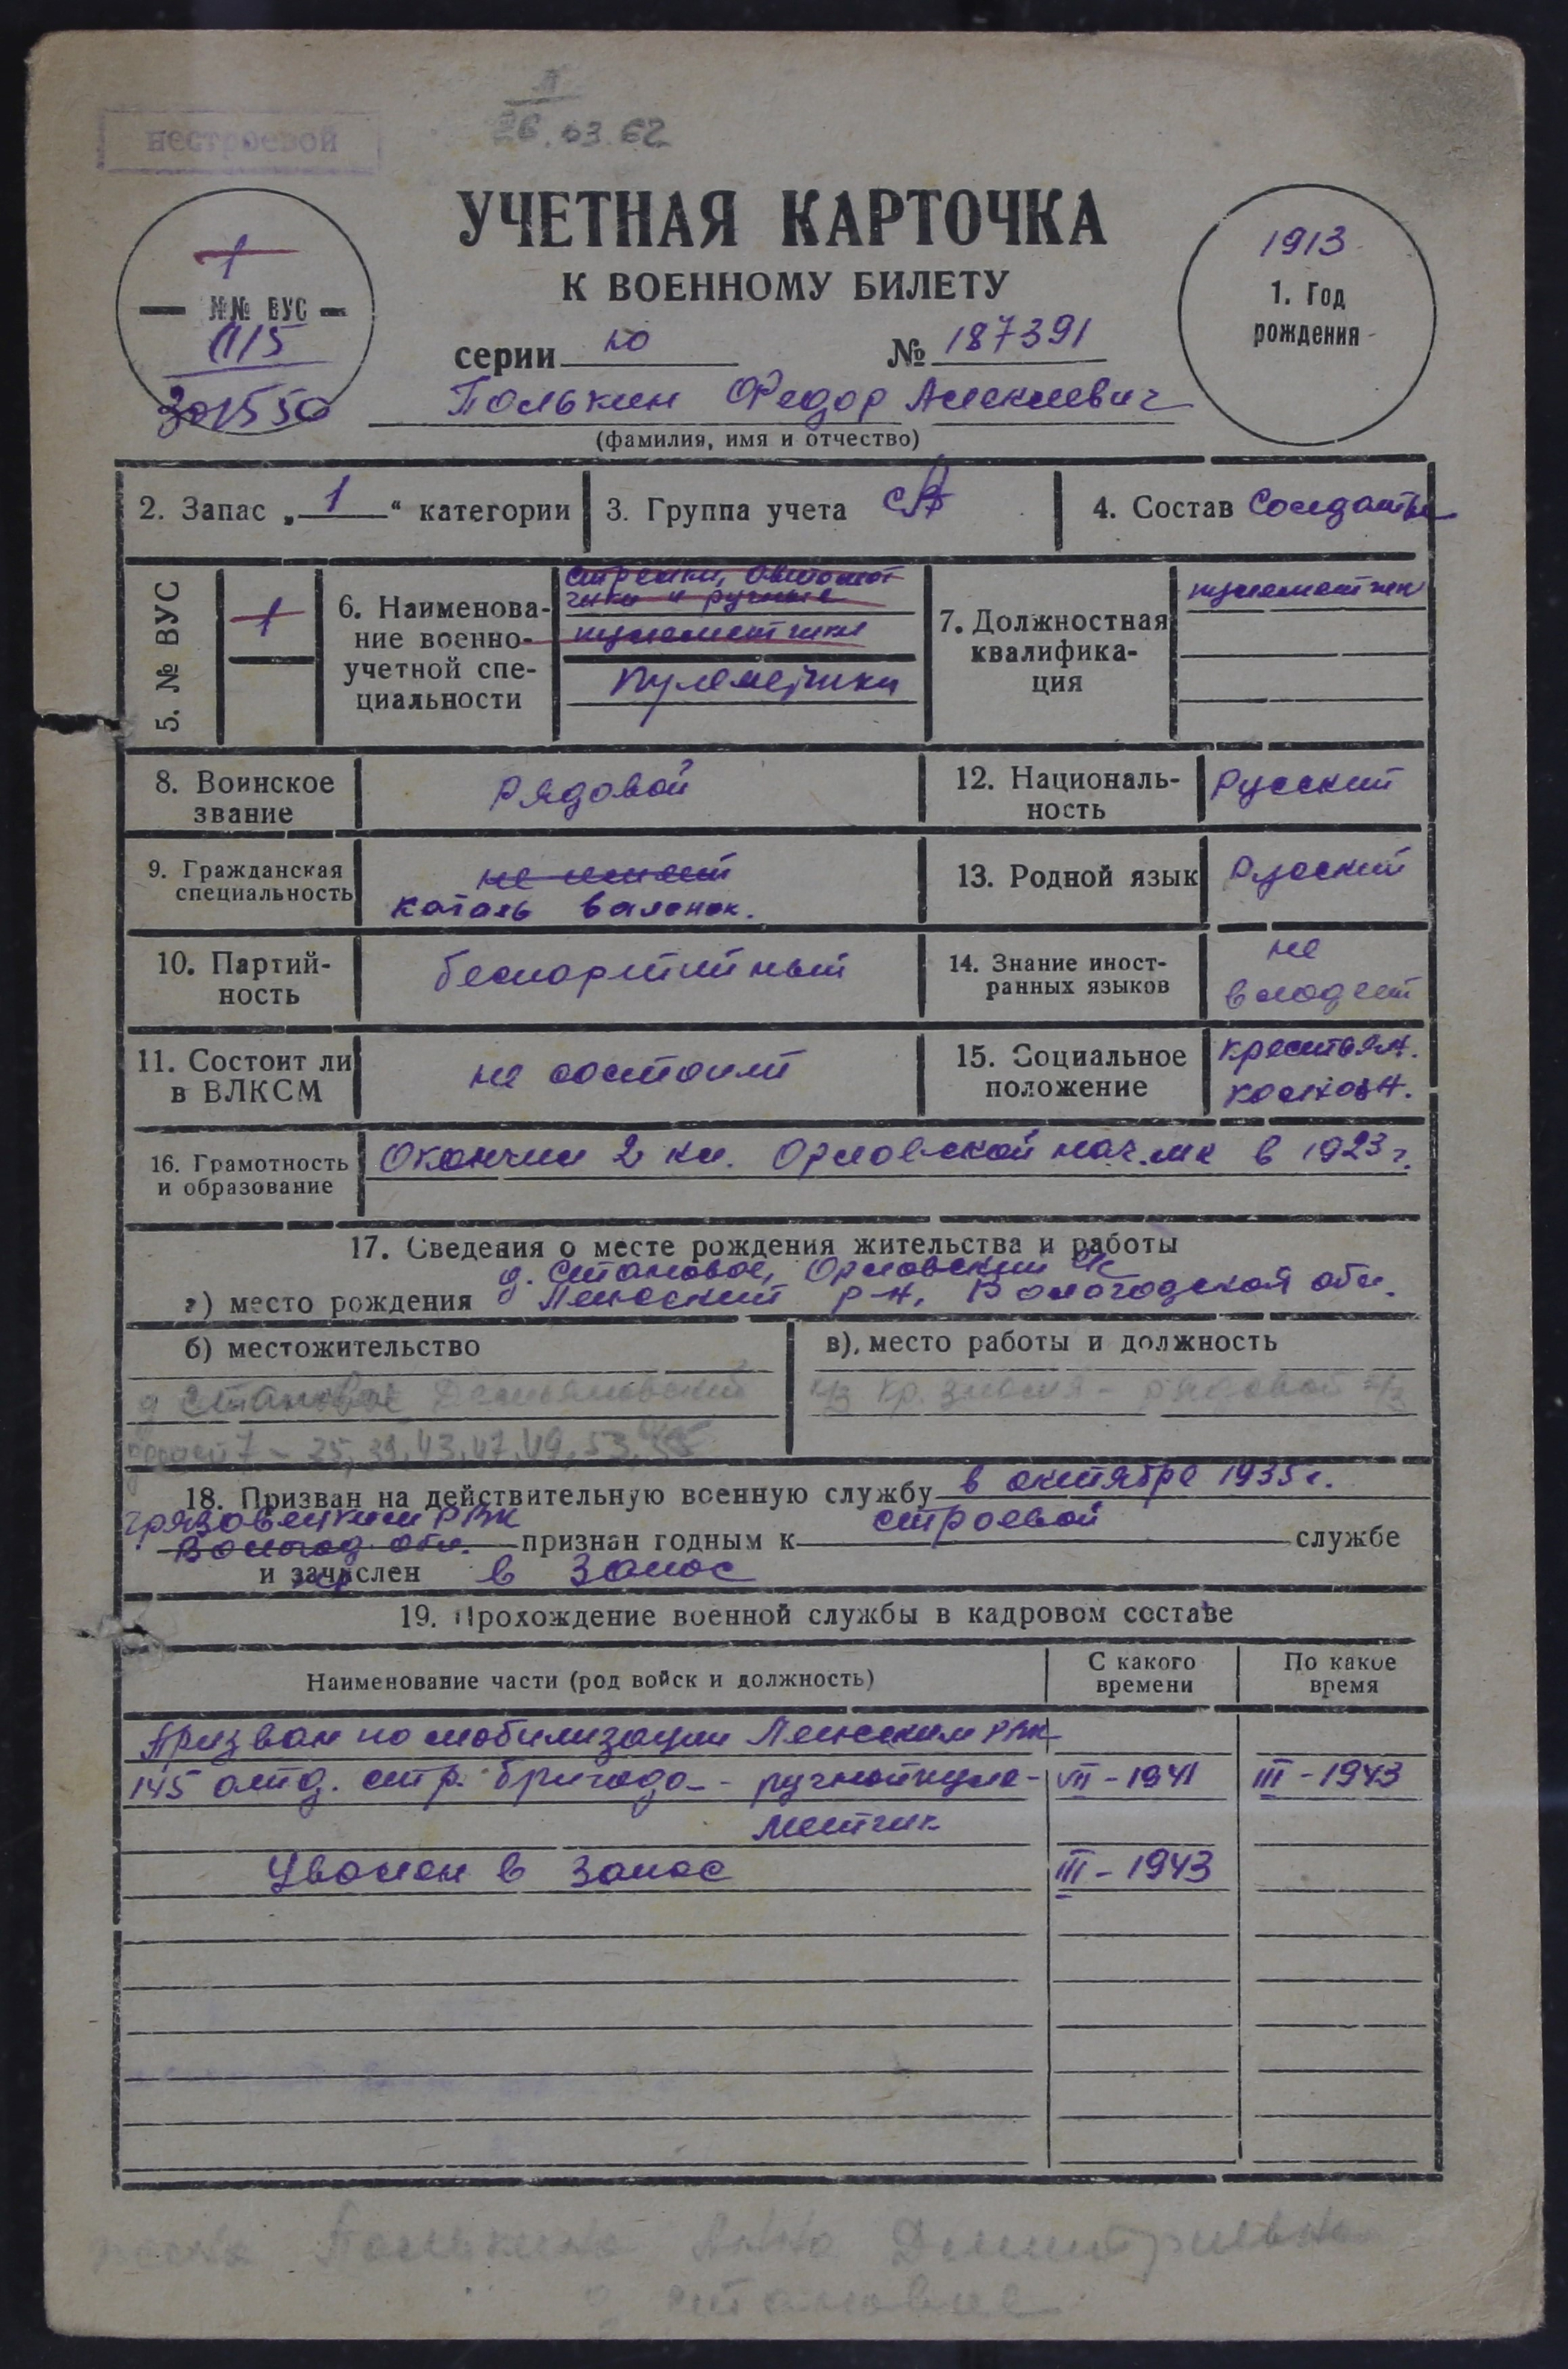 нестроевой
26.03.62
УЧЕТНАЯ КАРТОЧКА
К ВОЕННОМУ БИЛЕТУ
серии ю № 187391
1
№№ ВУС
115
301550
1913
1. Год
рождения
Полькин Федор Алексеевич
(фамилия, имя и отчество)
2. Запас „1“ категории
3. Группа учета СА
4. Состав Солдаты
5. № ВУС
1
6. Наименова-
ние военно-
учетной спе-
циальности
стрелки, автомат
чики и ручные
пулеметчики
Пулеметчики
7. Должностная
квалифика-
ция
пулеметчик
8. Воинское
звание
рядовой
12. Националь-
ность
Русский
9. Гражданская
специальность
не имеет
каталь валенок.
13. Родной язык
Русский
10. Партий-
ность
беспартийный
14. Знание иност-
ранных языков
не
владеет
11. Состоит ли
в ВЛКСМ
не состоит
15. Социальное
положение
крестьян.
колхозн.
16. Грамотность
и образование
Окончил 2 кл. Орловской нач. шк в 1923 г.
17. Сведения о месте рождения жительства и работы
д. Становое, Орловский с/с
а) место рождения Лежский р-н, Вологодской обл.
б) местожительство
в) место работы и должность
д Становое Демьяновский
к/з Кр. знамя - рядовой к/з
25, 39, 43, 47, 49, 53,
18. Призван на действительную военную службу в октябре 1935 г.
Грязовецким РВК
Волог. обл. признан годным к строевой службе
и зачислен в запас
19. Прохождение военной службы в кадровом составе
Наименование части (род войск и должность)
С какого
времени
По какое
время
Призван по мобилизации Лежским РВК
145 отд. стр. бригада - ручной пуле- VII - 1941 III - 1943
метчик
Уволен в запас III - 1943
жена Полькина Анна Дмитриевна
д становое